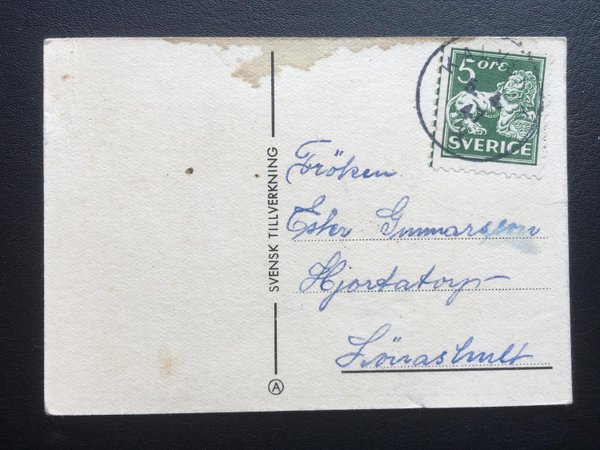 5 ÖRE
SVERIGE
SVENSK TILLVERKNING
A
Fröken
Ester Gunnarsson
Hjortatorp